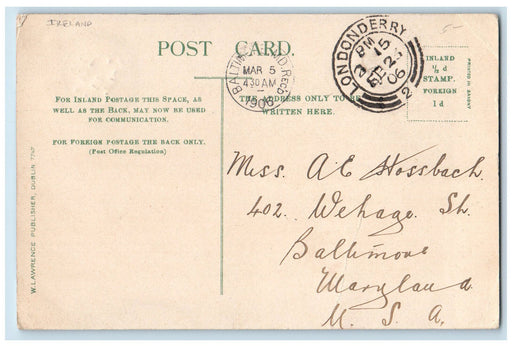 IRELAND
5-
POST CARD.
FOR INLAND POSTAGE THIS SPACE, AS
WELL AS THE BACK, MAY NOW BE USED
FOR COMMUNICATION.
FOR FOREIGN POSTAGE THE BACK ONLY.
(Post Office Regulation)
W. LAWRENCE PUBLISHER, DUBLIN
BALTIMORE, MD. REC'D.
MAR 5
430 AM
1906
LONDONDERRY
PM
06
2
THE ADDRESS ONLY TO BE
WRITTEN HERE.
INLAND
½ d
STAMP.
FOREIGN
1 d
PRINTED IN SAXONY
Miss. A. E Hossbach.
402. Wehage. St.
Baltimore
Maryland
U. S. A.